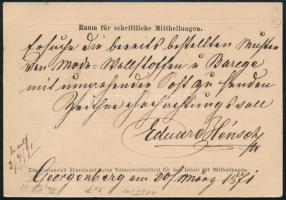 Raum für schriftliche Mittheilungen.
Ersuche die bereits bestellten Muster
von Mode-Wollstoffen u Barege
mit umgehender Post zu senden
Zeichne hochachtungsvoll
Eduard
Die Postanstalt übernimmt keine Verantwortlichkeit für den Inhalt der Mittheilungen.
Georgenberg am 20/ März 1871